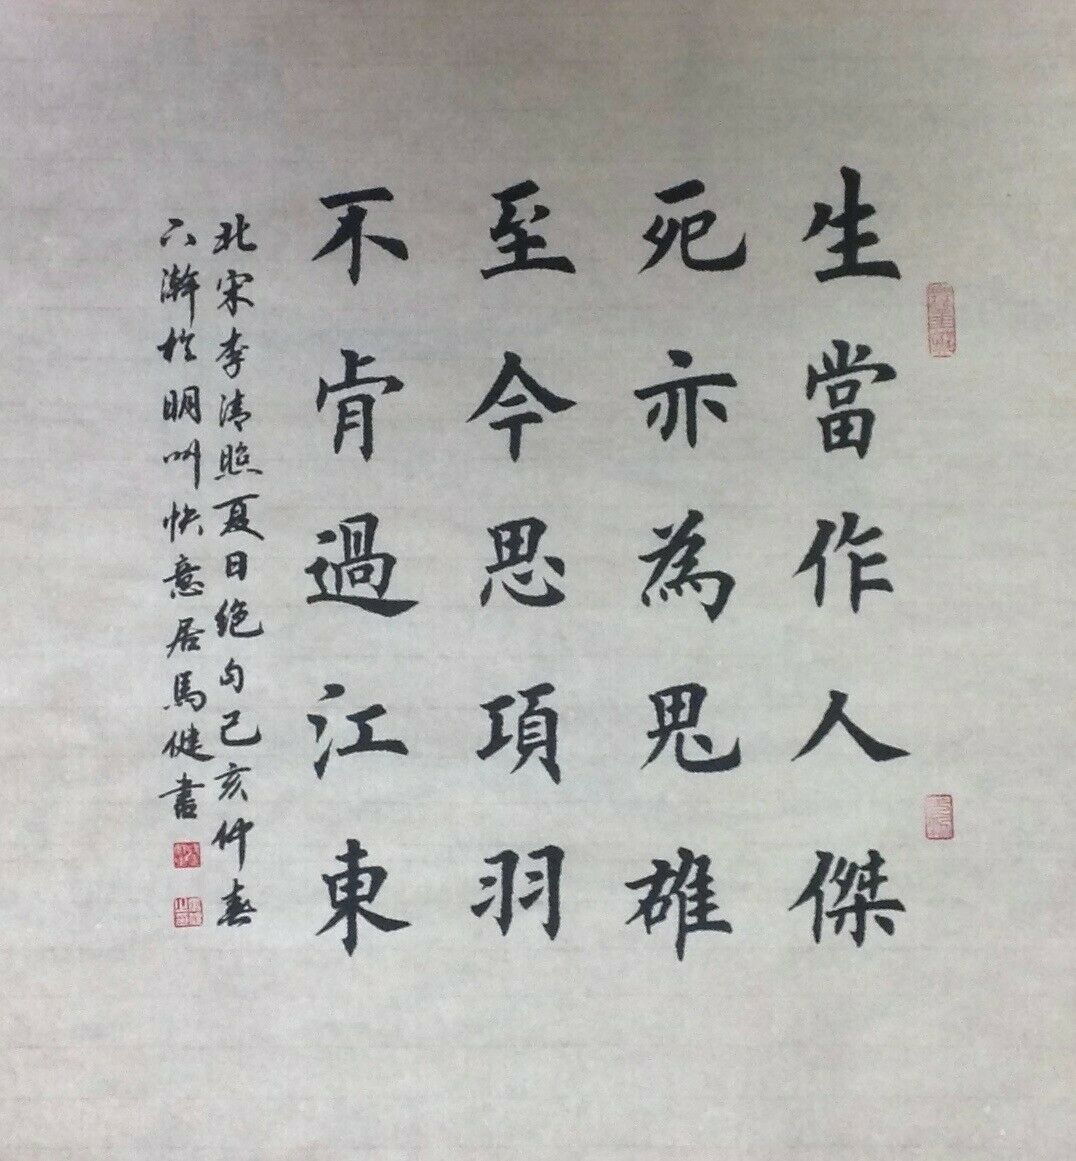 生當作人傑
死亦為鬼雄
至今思項羽
不肯過江東
北宋李清照夏日绝句己亥仲春
六瀚於明叫快意居馬健書